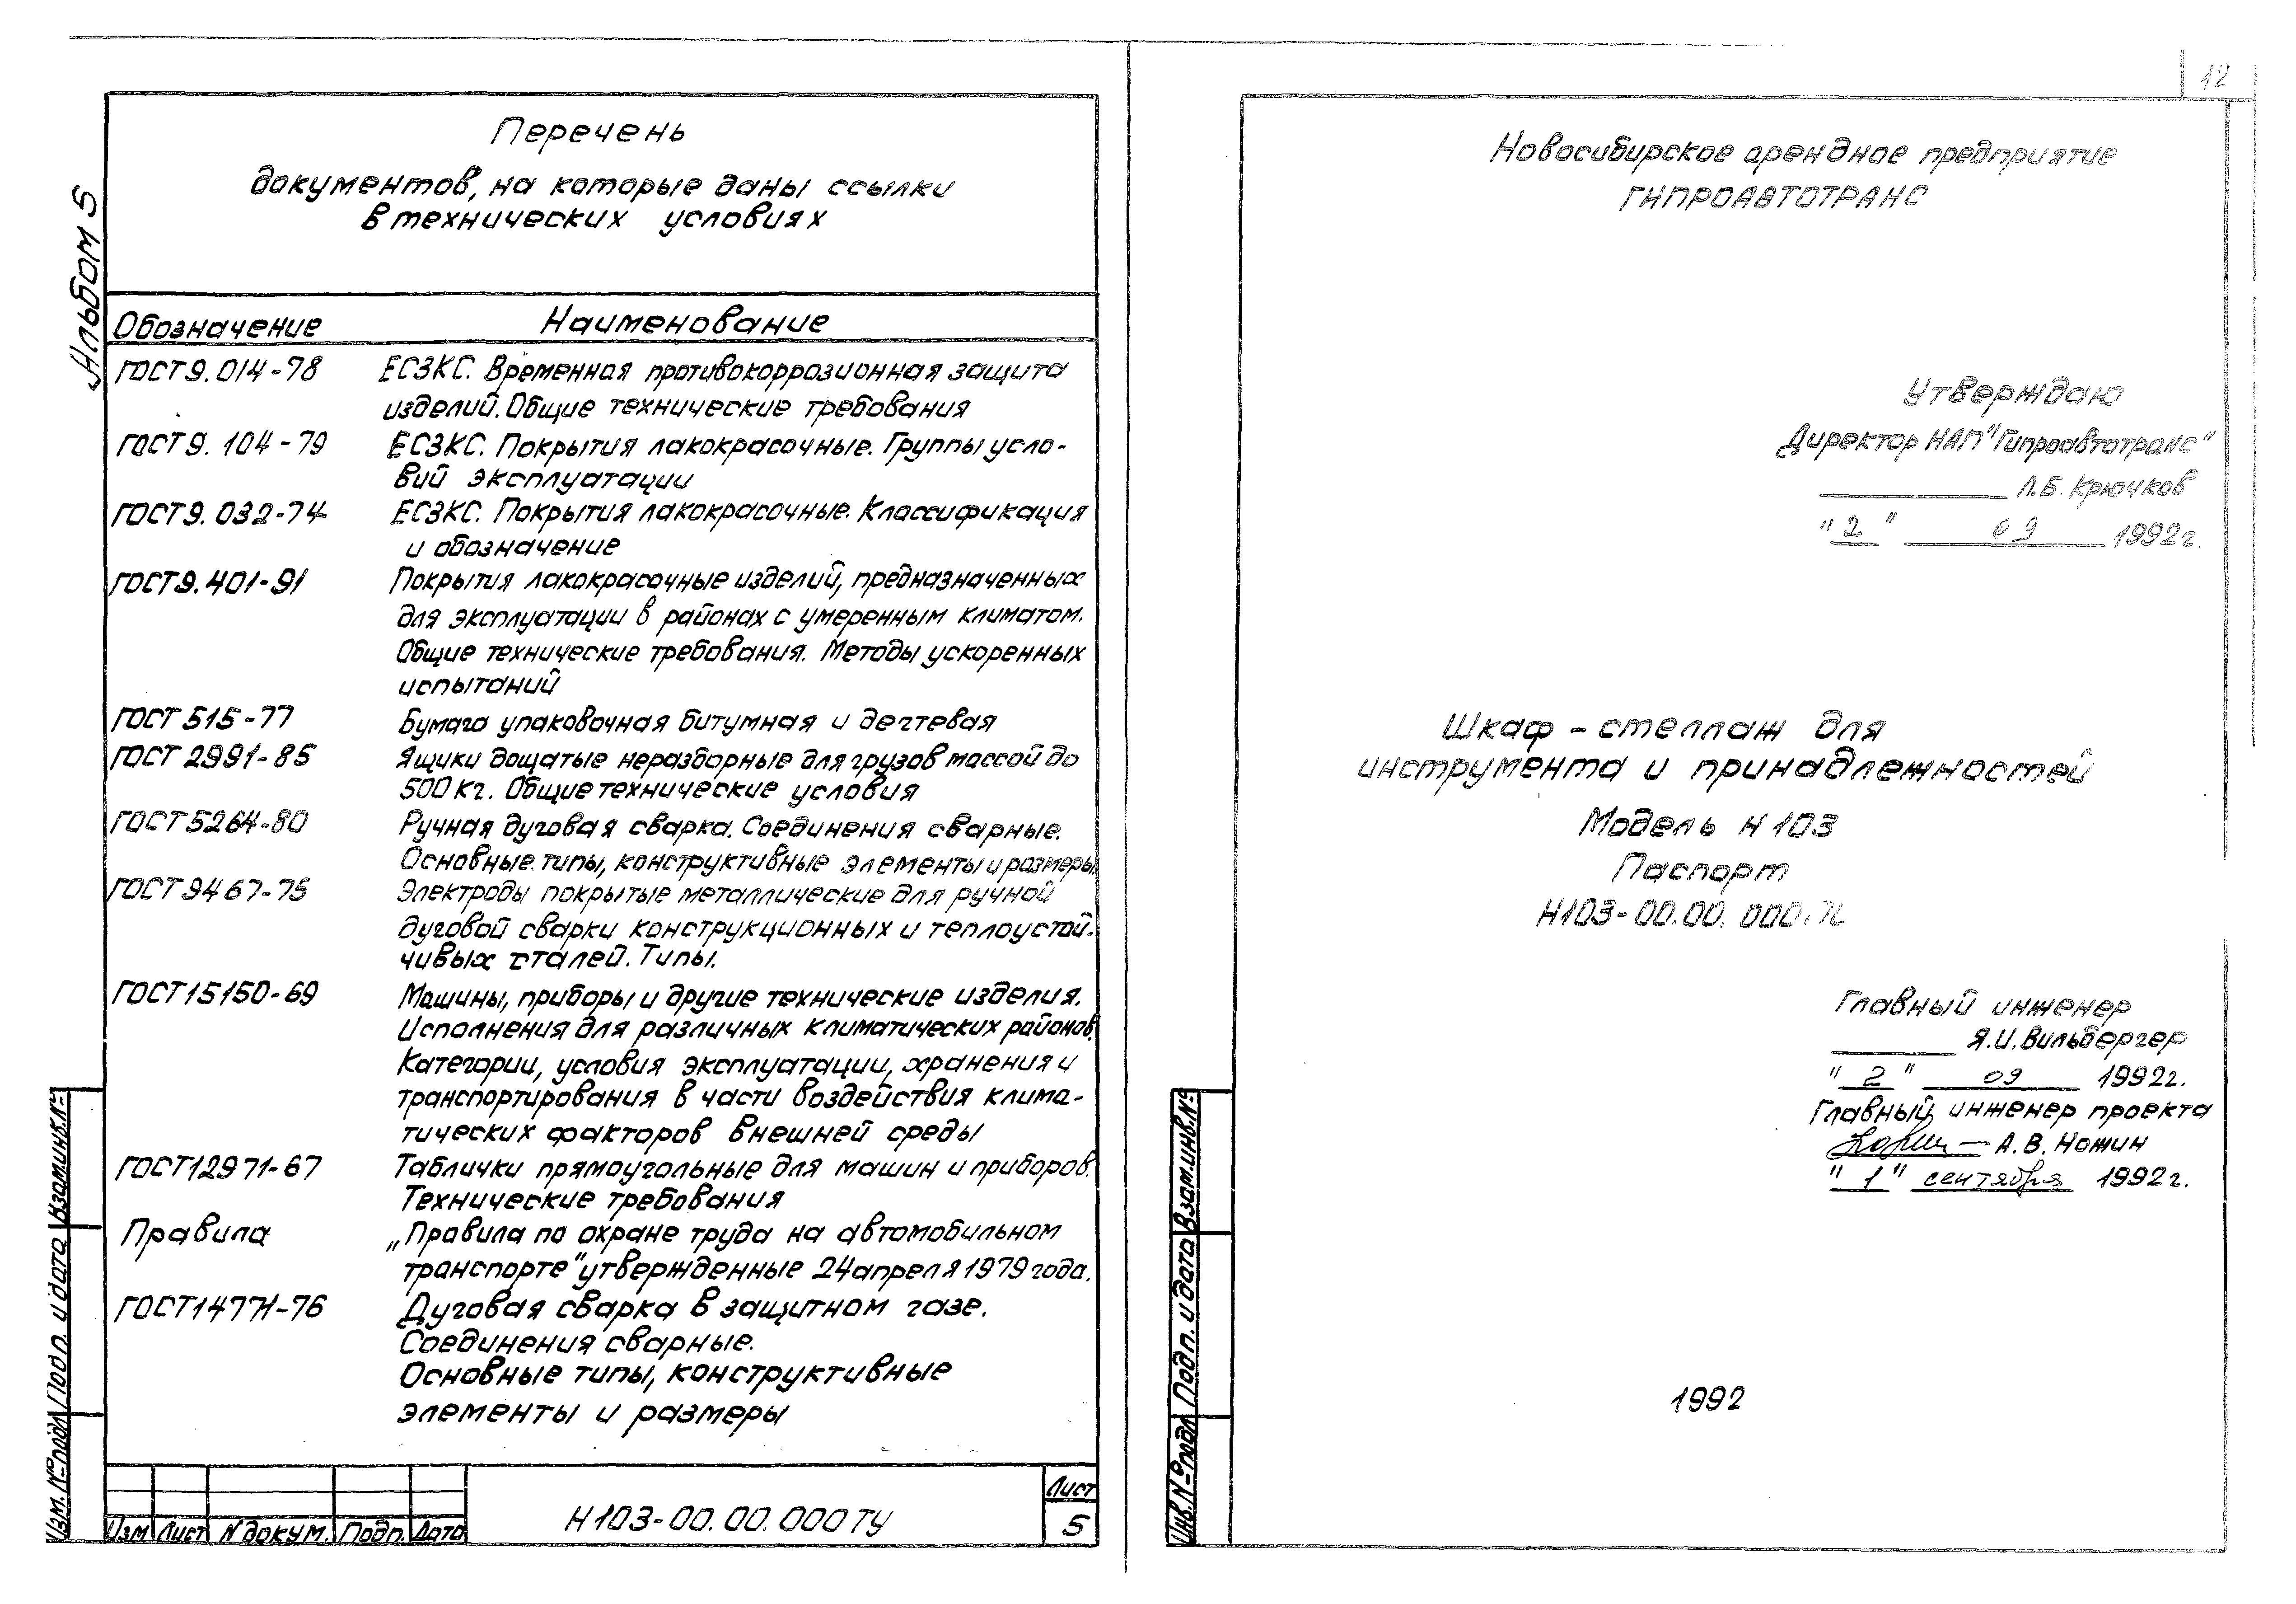 Альбом 5
Перечень
документов, на которые даны ссылки
в технических условиях
Обозначение Наименование
ГОСТ 9.014-78 ЕСЗКС. Временная противокоррозионная защита
изделий. Общие технические требования
ГОСТ 9.104-79 ЕСЗКС. Покрытия лакокрасочные. Группы усло-
вий эксплуатации
ГОСТ 9.032-74 ЕСЗКС. Покрытия лакокрасочные. Классификация
и обозначение
ГОСТ 9.401-91 Покрытия лакокрасочные изделий, предназначенных
для эксплуатации в районах с умеренным климатом.
Общие технические требования. Методы ускоренных
испытаний
ГОСТ 515-77 Бумага упаковочная битумная и дегтевая
ГОСТ 2991-85 Ящики дощатые неразборные для грузов массой до
500 кг. Общие технические условия
ГОСТ 5264-80 Ручная дуговая сварка. Соединения сварные.
Основные типы, конструктивные элементы и размеры
ГОСТ 9467-75 Электроды покрытые металлические для ручной
дуговой сварки конструкционных и теплоустой-
чивых сталей. Типы.
ГОСТ 15150-69 Машины, приборы и другие технические изделия.
Исполнения для различных климатических районов.
Категории, условия эксплуатации, хранения и
транспортирования в части воздействия клима-
тических факторов внешней среды
ГОСТ 12971-67 Таблички прямоугольные для машин и приборов.
Технические требования
Правила „Правила по охране труда на автомобильном
транспорте" утвержденные 24 апреля 1979 года.
ГОСТ 14771-76 Дуговая сварка в защитном газе.
Соединения сварные.
Основные типы, конструктивные
элементы и размеры
Изм. № подл Подп. и дата Взам.инв.№
Изм Лист N докум. Подп. Дата
Н103-00.00.000ТУ
Лист
5
12
Новосибирское арендное предприятие
ГИПРОАВТОТРАНС
Утверждаю
Директор НАП "Гипроавтотранс"
Л.Б. Крючков
"2" 09 1992г.
Шкаф - стеллаж для
инструмента и принадлежностей
Модель Н103
Паспорт
Н103-00.00.000
Главный инженер
Я.И. Вильбергер
"2" 09 1992г.
Главный инженер проекта
А.В. Ножин
"1" сентября 1992г.
1992
Инв.№ подл Подп. и дата Взам.инв.№